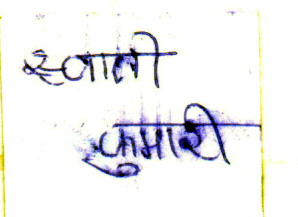 स्वाती
कुमारी